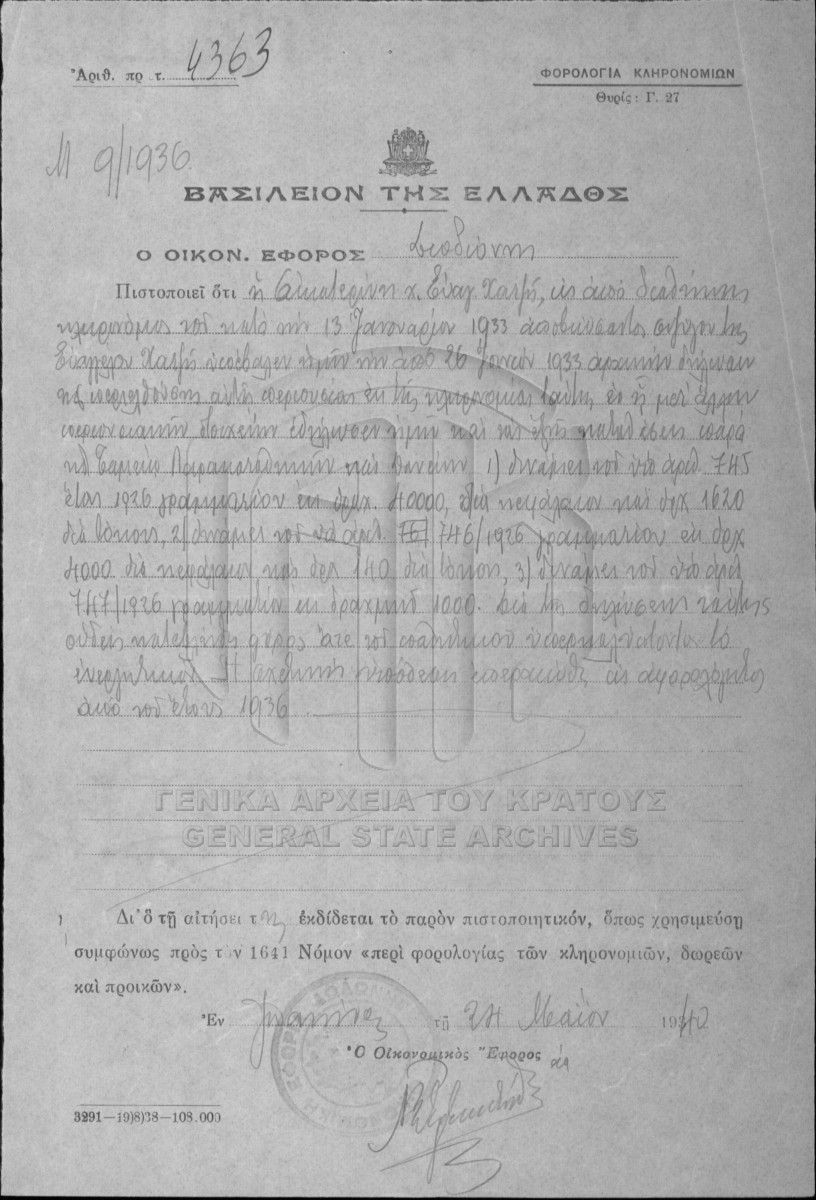 Ἀριθ. πρωτ. 4363
ΦΟΡΟΛΟΓΙΑ ΚΛΗΡΟΝΟΜΙΩΝ
Θυρίς: Γ. 27
Μ 9/1936
ΒΑΣΙΛΕΙΟΝ ΤΗΣ ΕΛΛΑΔΟΣ
Ο ΟΙΚΟΝ. ΕΦΟΡΟΣ
Πιστοποιεῖ ὅτι ἡ Αἰκατερίνη χ. Εὐαγ Χατζῆ, ὡς ἀπό διαθήκης
κληρονόμος τοῦ κατά τήν 13 Ἰανουαρίου 1933 ἀποβιώσαντος συζύγου της
Εὐαγγέλου Χατζῆ ὑπέβαλεν ἡμῖν τήν ἀπό 26 Ἰουνίου 1933 ἀρχικήν δήλωσιν
τῆς περιελθούσης αὐτῇ περιουσίας ἐκ τῆς κληρονομίας ταύτης, ἐν ᾗ μετ' ἄλλων
περιουσιακῶν στοιχείων ἐδήλωσεν ἡμῖν καί τάς ἑξῆς καταθέσεις παρά
τῷ Ταμείῳ Παρακαταθηκῶν καί Δανείων 1) δυνάμει τοῦ ὑπ' ἀριθ. 745
ἔτους 1926 γραμματίου ἐκ δραχ. 40000, διά κεφάλαιον καί δρχ 1620
διά τόκους, 2) δυνάμει τοῦ ὑπ' ἀριθ. 746/1926 γραμματίου ἐκ δρχ
4000 διά κεφάλαιον καί δρχ 140 διά τόκους, 3) δυνάμει τοῦ ὑπ' ἀριθ
747/1926 γραμματίου ἐκ δραχμῶν 1000. Διά τῆς δηλώσεως ταύτης
οὐδείς κατελογίσθη φόρος ἅτε τοῦ παθητικοῦ ὑπερκαλύπτοντος τό
ἐνεργητικόν. Ἡ σχετική ὑπόθεσις ἐπερατώθη ὡς ἀφορολόγητος
ἀπό τοῦ ἔτους 1936
ΓΕΝΙΚΑ ΑΡΧΕΙΑ ΤΟΥ ΚΡΑΤΟΥΣ
GENERAL STATE ARCHIVES
Δι' ὅ τῇ αἰτήσει της ἐκδίδεται τὸ παρὸν πιστοποιητικόν, ὅπως χρησιμεύσῃ
συμφώνως πρὸς τὸν 1641 Νόμον «περὶ φορολογίας τῶν κληρονομιῶν, δωρεῶν
καὶ προικῶν».
Ἐν Ἰωαννίνοις τῇ 24 Μαΐου 1940
Ὁ Οἰκονομικὸς Ἔφορος
3291—19)8)38—108.000